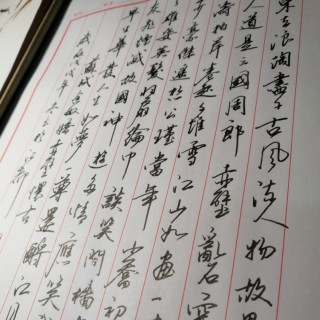 東去浪淘盡千古風流人物故壘
人道是三國周郎赤壁亂石穿
濤拍岸卷起千堆雪江山如畫一
少豪傑遙想公瑾當年小喬初
雄姿英發羽扇綸巾談笑間檣
灰飛煙滅故國神遊多情應笑
早生華發人生如夢一尊還酹江月
蘇軾念奴嬌赤壁懷古
戊戌年冬